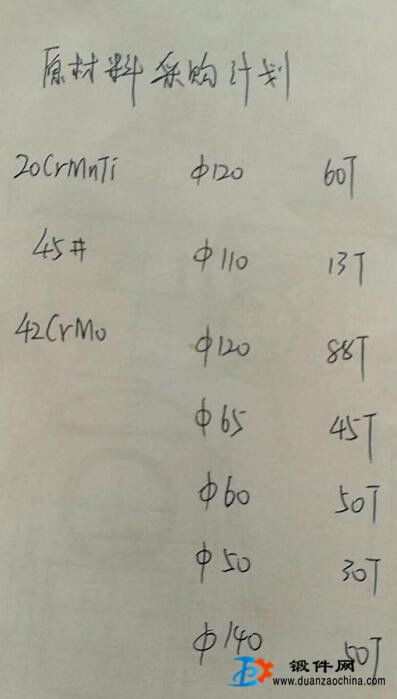 原材料采购计划
20CrMnTi φ120 60T
45# φ110 13T
42CrMo φ120 88T
φ65 45T
φ60 50T
φ50 30T
φ140 50T
锻件网
www.duanzaochina.com